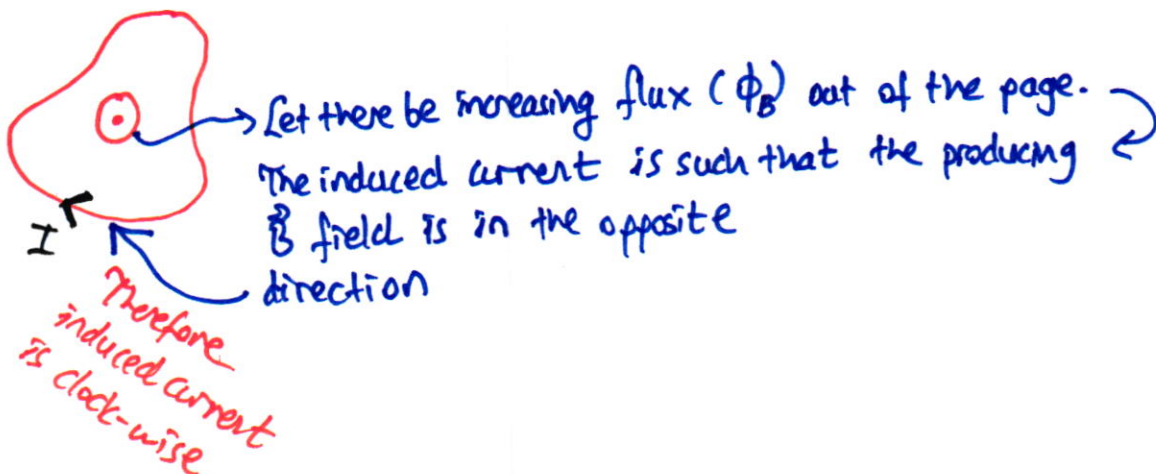 Let there be increasing flux (ϕ_B) out of the page.
The induced current is such that the producing
B field is in the opposite
direction
I
Therefore
induced current
is clock-wise